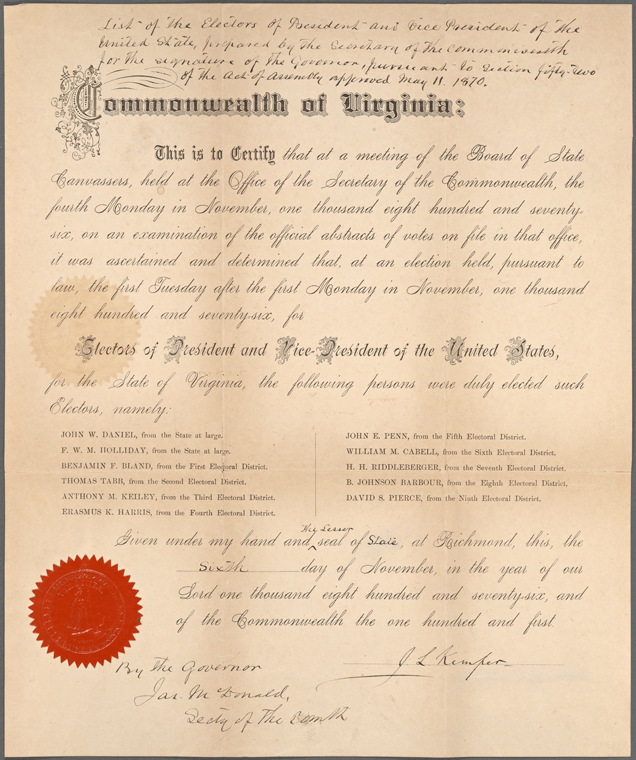 List of the Electors of President and Vice President of the
United State, prepared by the Secretary of the Commonwealth
for the signature of the Governor, pursuant to Section fifty-two
of the Act of Assembly approved May 11. 1870.
Commonwealth of Virginia:
This is to Certify that at a meeting of the Board of State
Canvassers, held at the Office of the Secretary of the Commonwealth, the
fourth Monday in November, one thousand eight hundred and seventy-
six, on an examination of the official abstracts of votes on file in that office,
it was ascertained and determined that, at an election held, pursuant to
law, the first Tuesday after the first Monday in November, one thousand
eight hundred and seventy-six, for
Electors of President and Vice-President of the United States,
for the State of Virginia, the following persons were duly elected such
Electors, namely:
JOHN W. DANIEL, from the State at large.
F. W. M. HOLLIDAY, from the State at large.
BENJAMIN F. BLAND, from the First Electoral District.
THOMAS TABB, from the Second Electoral District.
ANTHONY M. KEILEY, from the Third Electoral District.
ERASMUS K. HARRIS, from the Fourth Electoral District.
JOHN E. PENN, from the Fifth Electoral District.
WILLIAM M. CABELL, from the Sixth Electoral District.
H. H. RIDDLEBERGER, from the Seventh Electoral District.
B. JOHNSON BARBOUR, from the Eighth Electoral District.
DAVID S. PIERCE, from the Ninth Electoral District.
the Lesser
Given under my hand and seal of State, at Richmond, this, the
sixth day of November, in the year of our
Lord one thousand eight hundred and seventy-six, and
of the Commonwealth the one hundred and first.
J L Kemper
By the Governor
Jas. McDonald,
Secty of the Comth